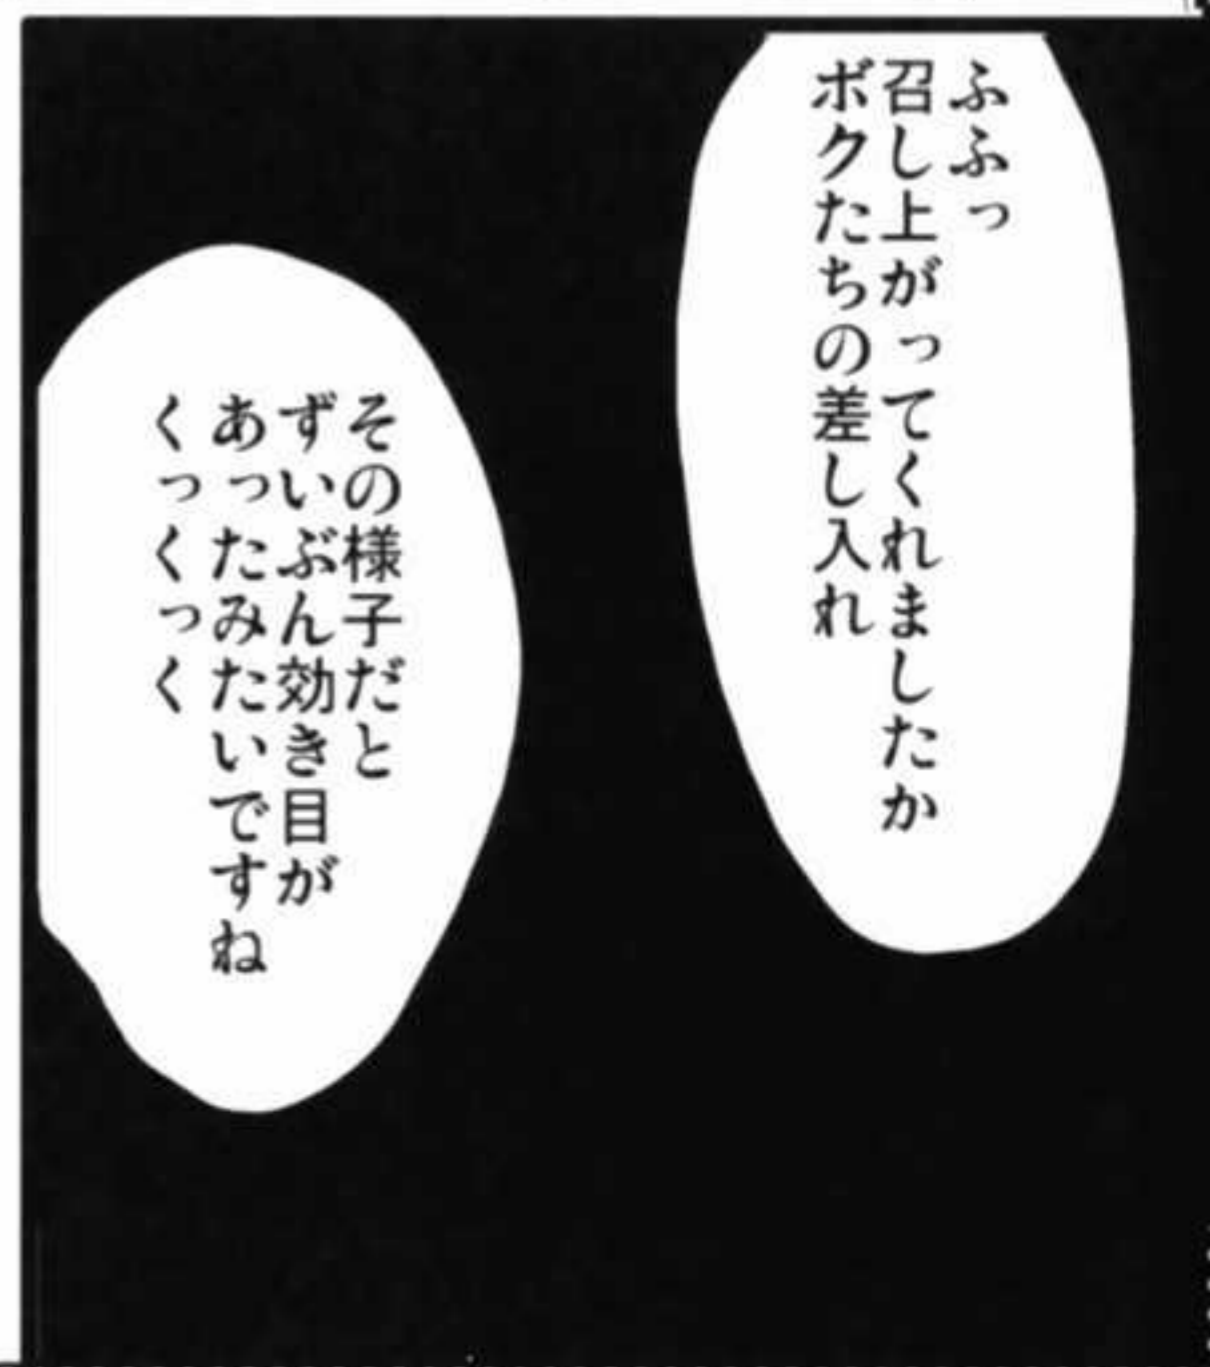 ふふっ
召し上がってくれましたか
ボクたちの差し入れ
その様子だと
ずいぶん効き目が
あったみたいですね
くっくっく